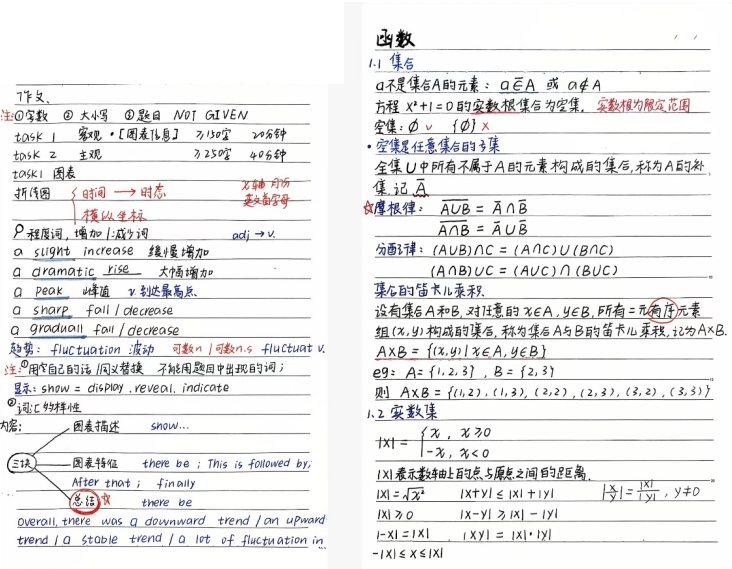 作文、
注:①字数 ② 大小写 ③题目 NOT GIVEN
task 1 客观·[图表信息] ≥150字 20分钟
task 2 主观 ≥250字 40分钟
task1 图表
折线图 { 时间 → 时态 x轴 月份
横纵坐标 英文首字母
程度词,增加/减少词 adj → v.
a slight increase 缓慢增加
a dramatic rise 大幅增加
a peak 峰值 v.到达最高点
a sharp fall / decrease
a graduall fall / decrease
趋势: fluctuation 波动 可数n / 可数n.s fluctuat v.
注:①用自己的话/同义替换 不能用题目中出现的词;
显示: show = display . reveal . indicate
②词汇多样性
内容: 图表描述 show...
三块 图表特征 there be ; This is followed by;
After that ; finally
总结 ☆ there be
overall, there was a downward trend / an upward
trend / a stable trend / a lot of fluctuation in
函数
1.1 集合
a不是集合A的元素: a∈̅A 或 a∉A
方程 x²+1=0的实数根集合为空集. 实数根为限定范围
空集:∅ v {∅} ×
• 空集是任意集合的子集
全集U中所有不属于A的元素构成的集合,称为A的补
集,记 A̅
☆摩根律: A∪B̅ = A̅∩B̅
A∩B̅ = A̅∪B̅
分配律: (A∪B)∩C = (A∩C)∪(B∩C)
(A∩B)∪C = (A∪C)∩(B∪C)
集合的笛卡儿乘积
设有集合A和B,对任意的x∈A,y∈B,所有二元有序元素
组(x,y)构成的集合,称为集合A与B的笛卡儿乘积,记为A×B.
A×B = {(x,y)|x∈A,y∈B}
eg: A={1,2,3} , B={2,3}
则 A×B = {(1,2),(1,3),(2,2),(2,3),(3,2),(3,3)}
1.2 实数集
|x| = { x , x≥0
-x, x<0
|x|表示数轴上的点与原点之间的距离.
|x|=√x² |x+y|≤|x|+|y| |x/y|=|x|/|y|, y≠0
|x|≥0 |x-y|≥|x|-|y|
|-x|=|x| |xy|=|x|·|y|
-|x|≤x≤|x|